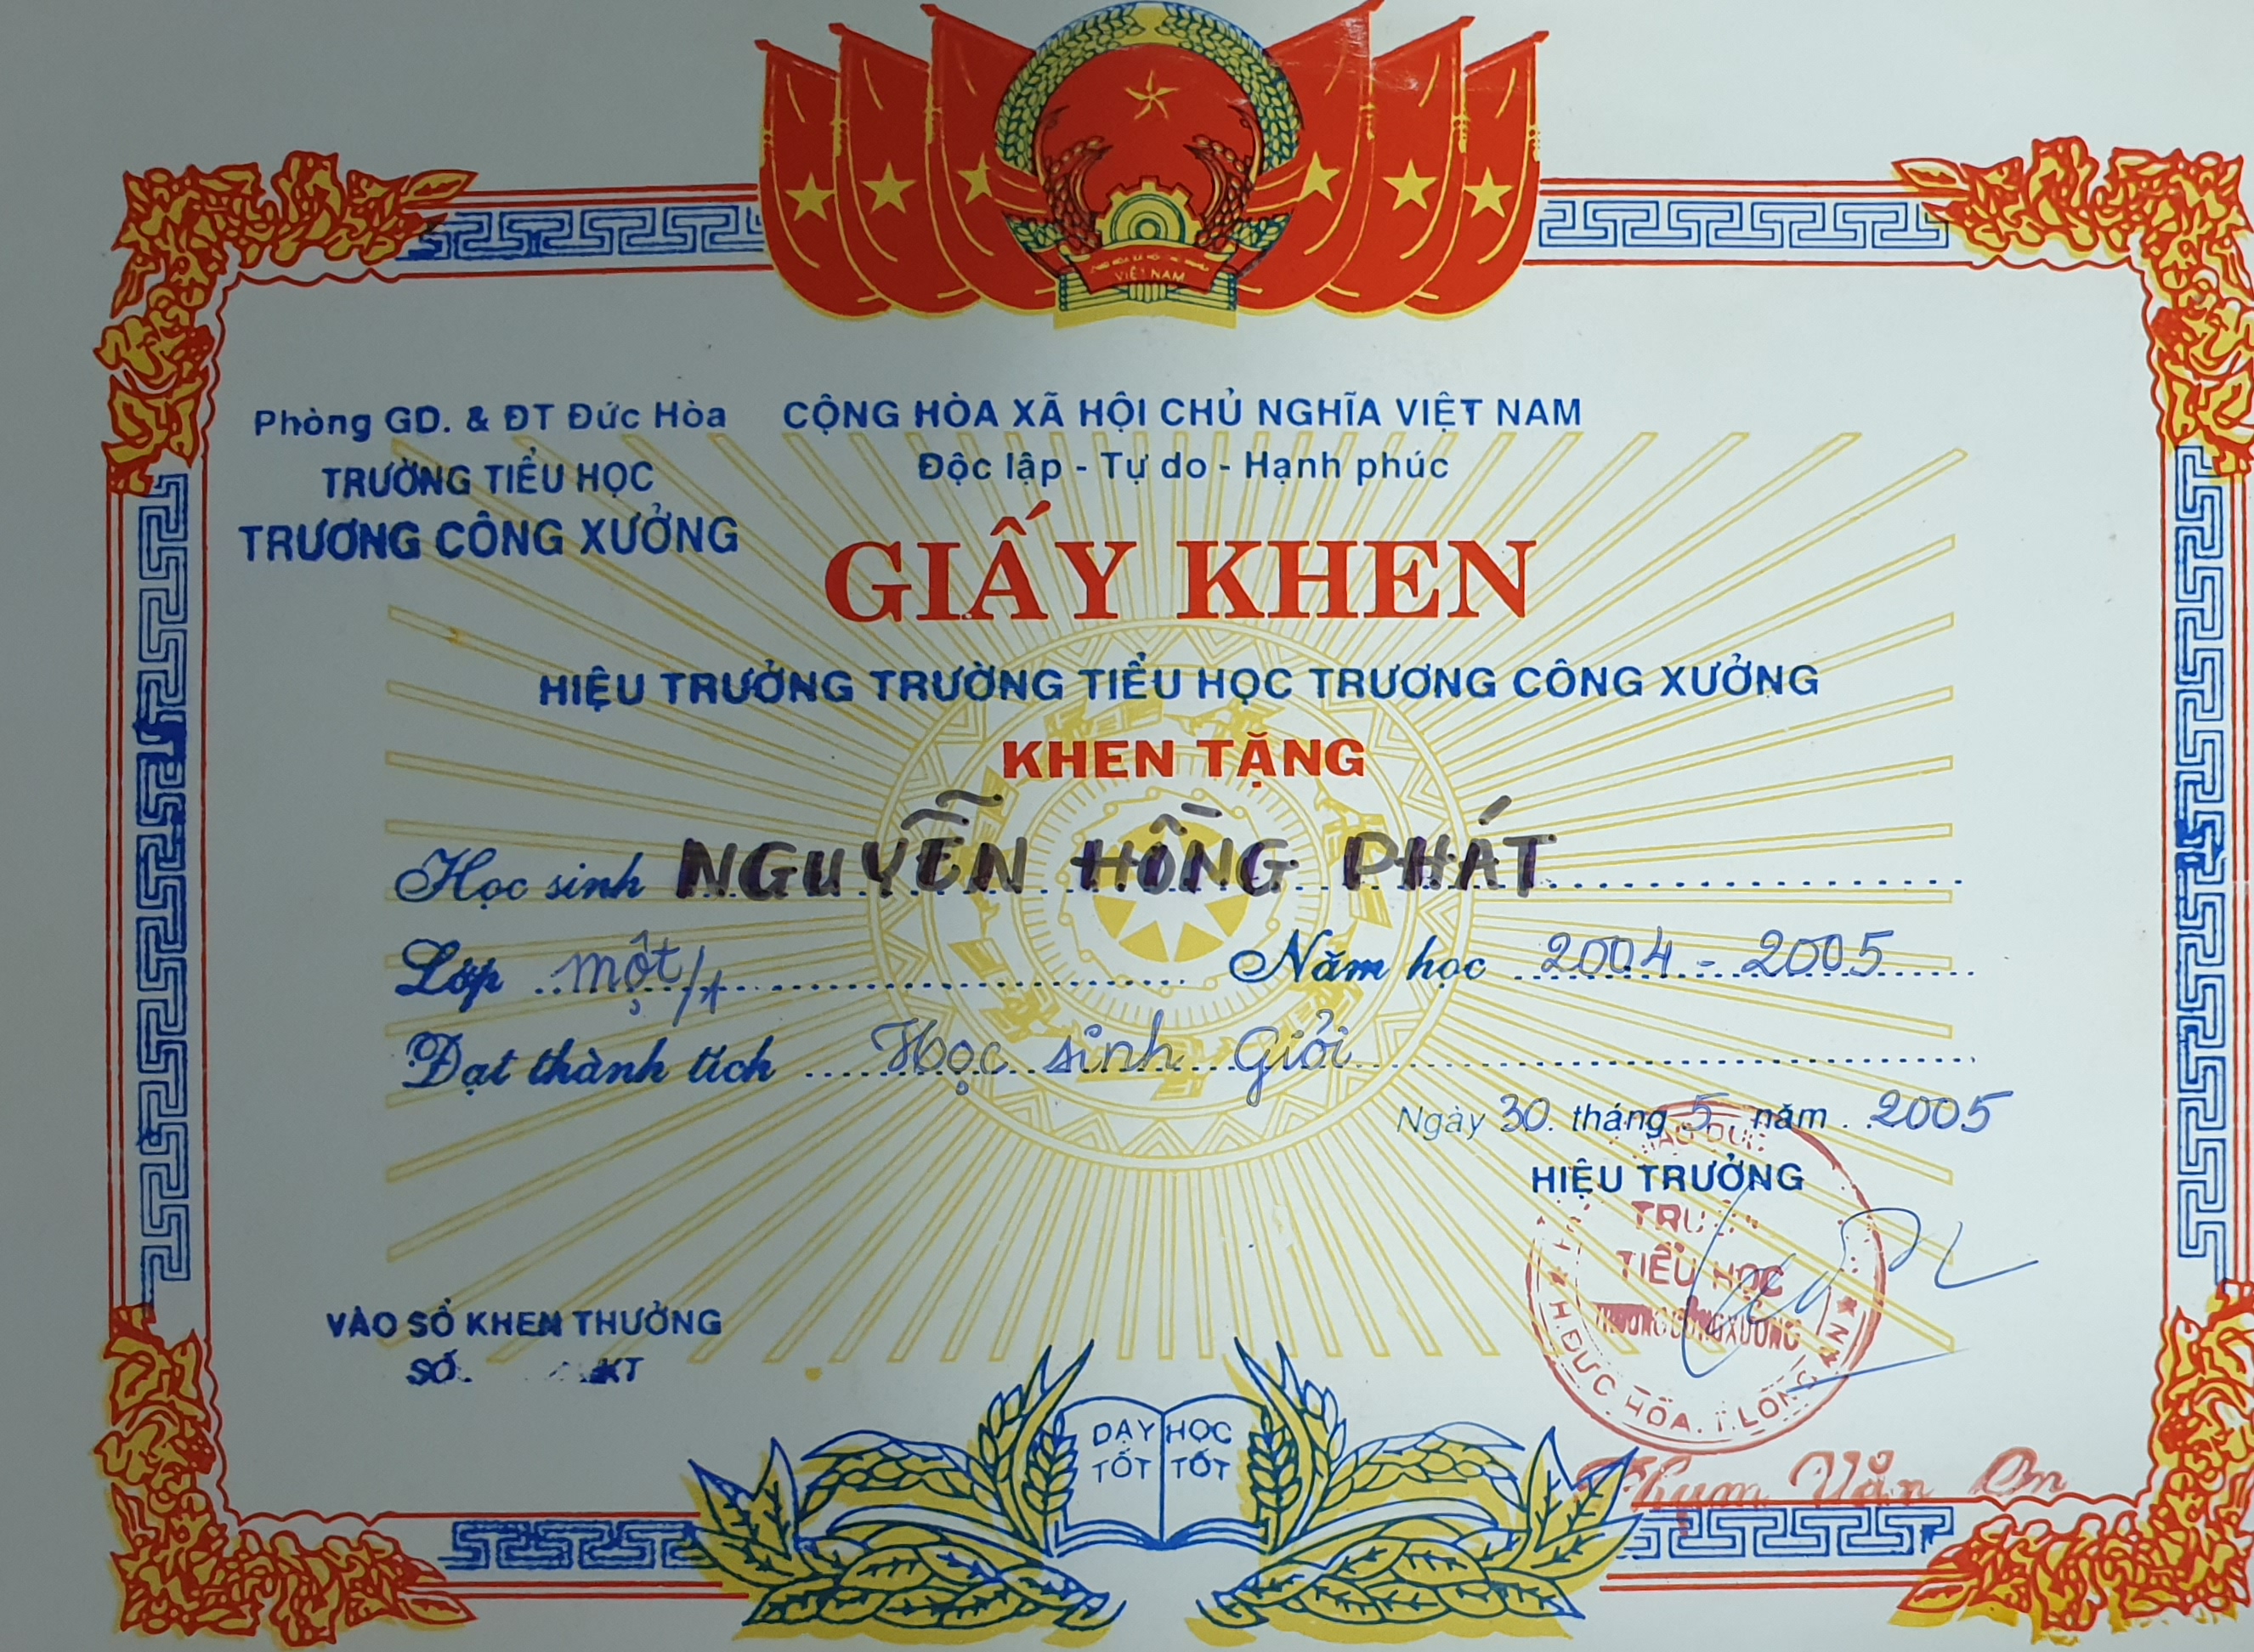 VIỆT NAM
Phòng GD. & ĐT Đức Hòa
TRƯỜNG TIỂU HỌC
TRƯƠNG CÔNG XƯỞNG
CỘNG HÒA XÃ HỘI CHỦ NGHĨA VIỆT NAM
Độc lập - Tự do - Hạnh phúc
GIẤY KHEN
HIỆU TRƯỞNG TRƯỜNG TIỂU HỌC TRƯƠNG CÔNG XƯỞNG
KHEN TẶNG
Học sinh NGUYỄN HỒNG PHÁT
Lớp một/1 Năm học 2004 - 2005
Đạt thành tích Học sinh Giỏi
Ngày 30 tháng 5 năm 2005
HIỆU TRƯỞNG
TIỂU HỌC
TRƯƠNG CÔNG XƯỞNG
H.ĐỨC HÒA. T.LONG AN
Phạm Văn On
VÀO SỔ KHEN THƯỞNG
SỐ. KT
DẠY TỐT
HỌC TỐT